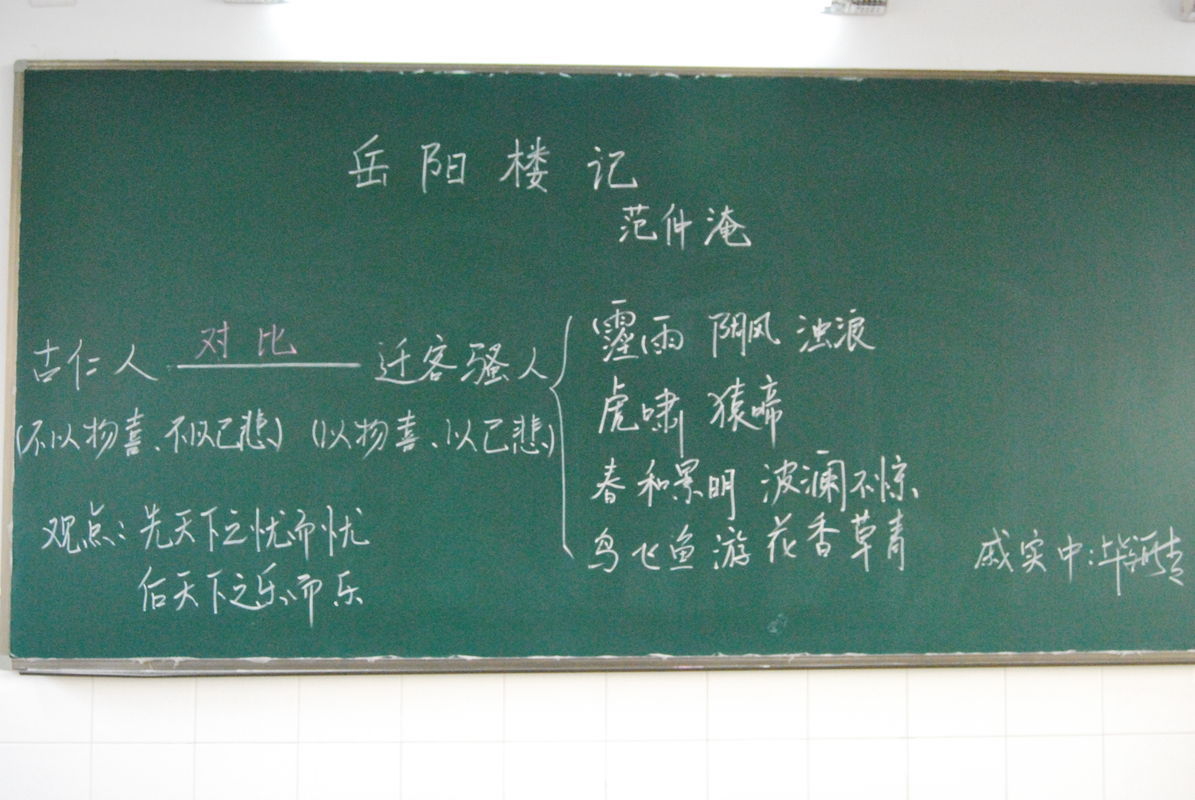 岳阳楼记
范仲淹
古仁人 对比 迁客骚人
(不以物喜、不以己悲) (以物喜、以己悲)
霪雨 阴风 浊浪
虎啸 猿啼
春和景明 波澜不惊
鸟飞鱼游 花香草青
观点:先天下之忧而忧
后天下之乐而乐
戚实中:毕